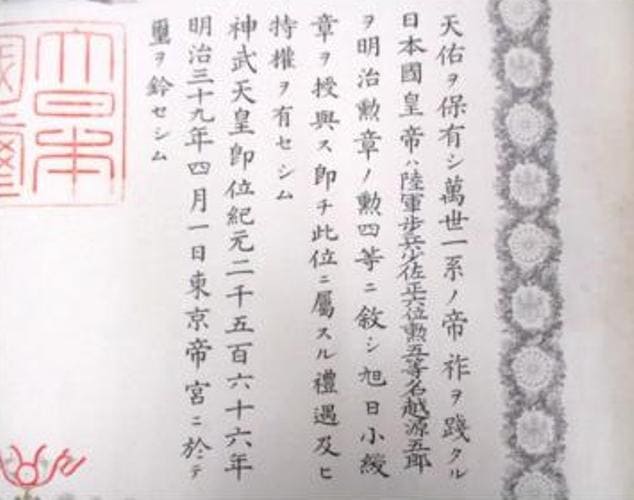 天佑ヲ保有シ萬世一系ノ帝祚ヲ踐タル
日本國皇帝ハ陸軍步兵少佐正六位勲五等名越源五郎
ヲ明治勲章ノ勲四等ニ敘シ旭日小綬
章ヲ授與ス卽チ此位ニ屬スル禮遇及ヒ
特權ヲ有セシム
神武天皇卽位紀元二千五百六十六年
明治三十九年四月一日東京帝宮ニ於テ
璽ヲ鈐セシム
大日本
國璽